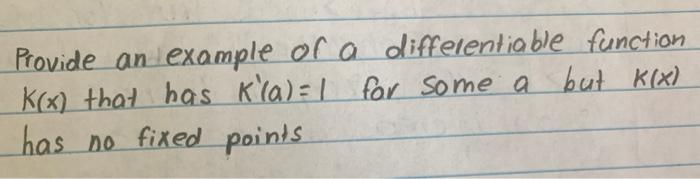 Provide an example of a differentiable function
K(x) that has K'(a)=1 for some a but K(x)
has no fixed points